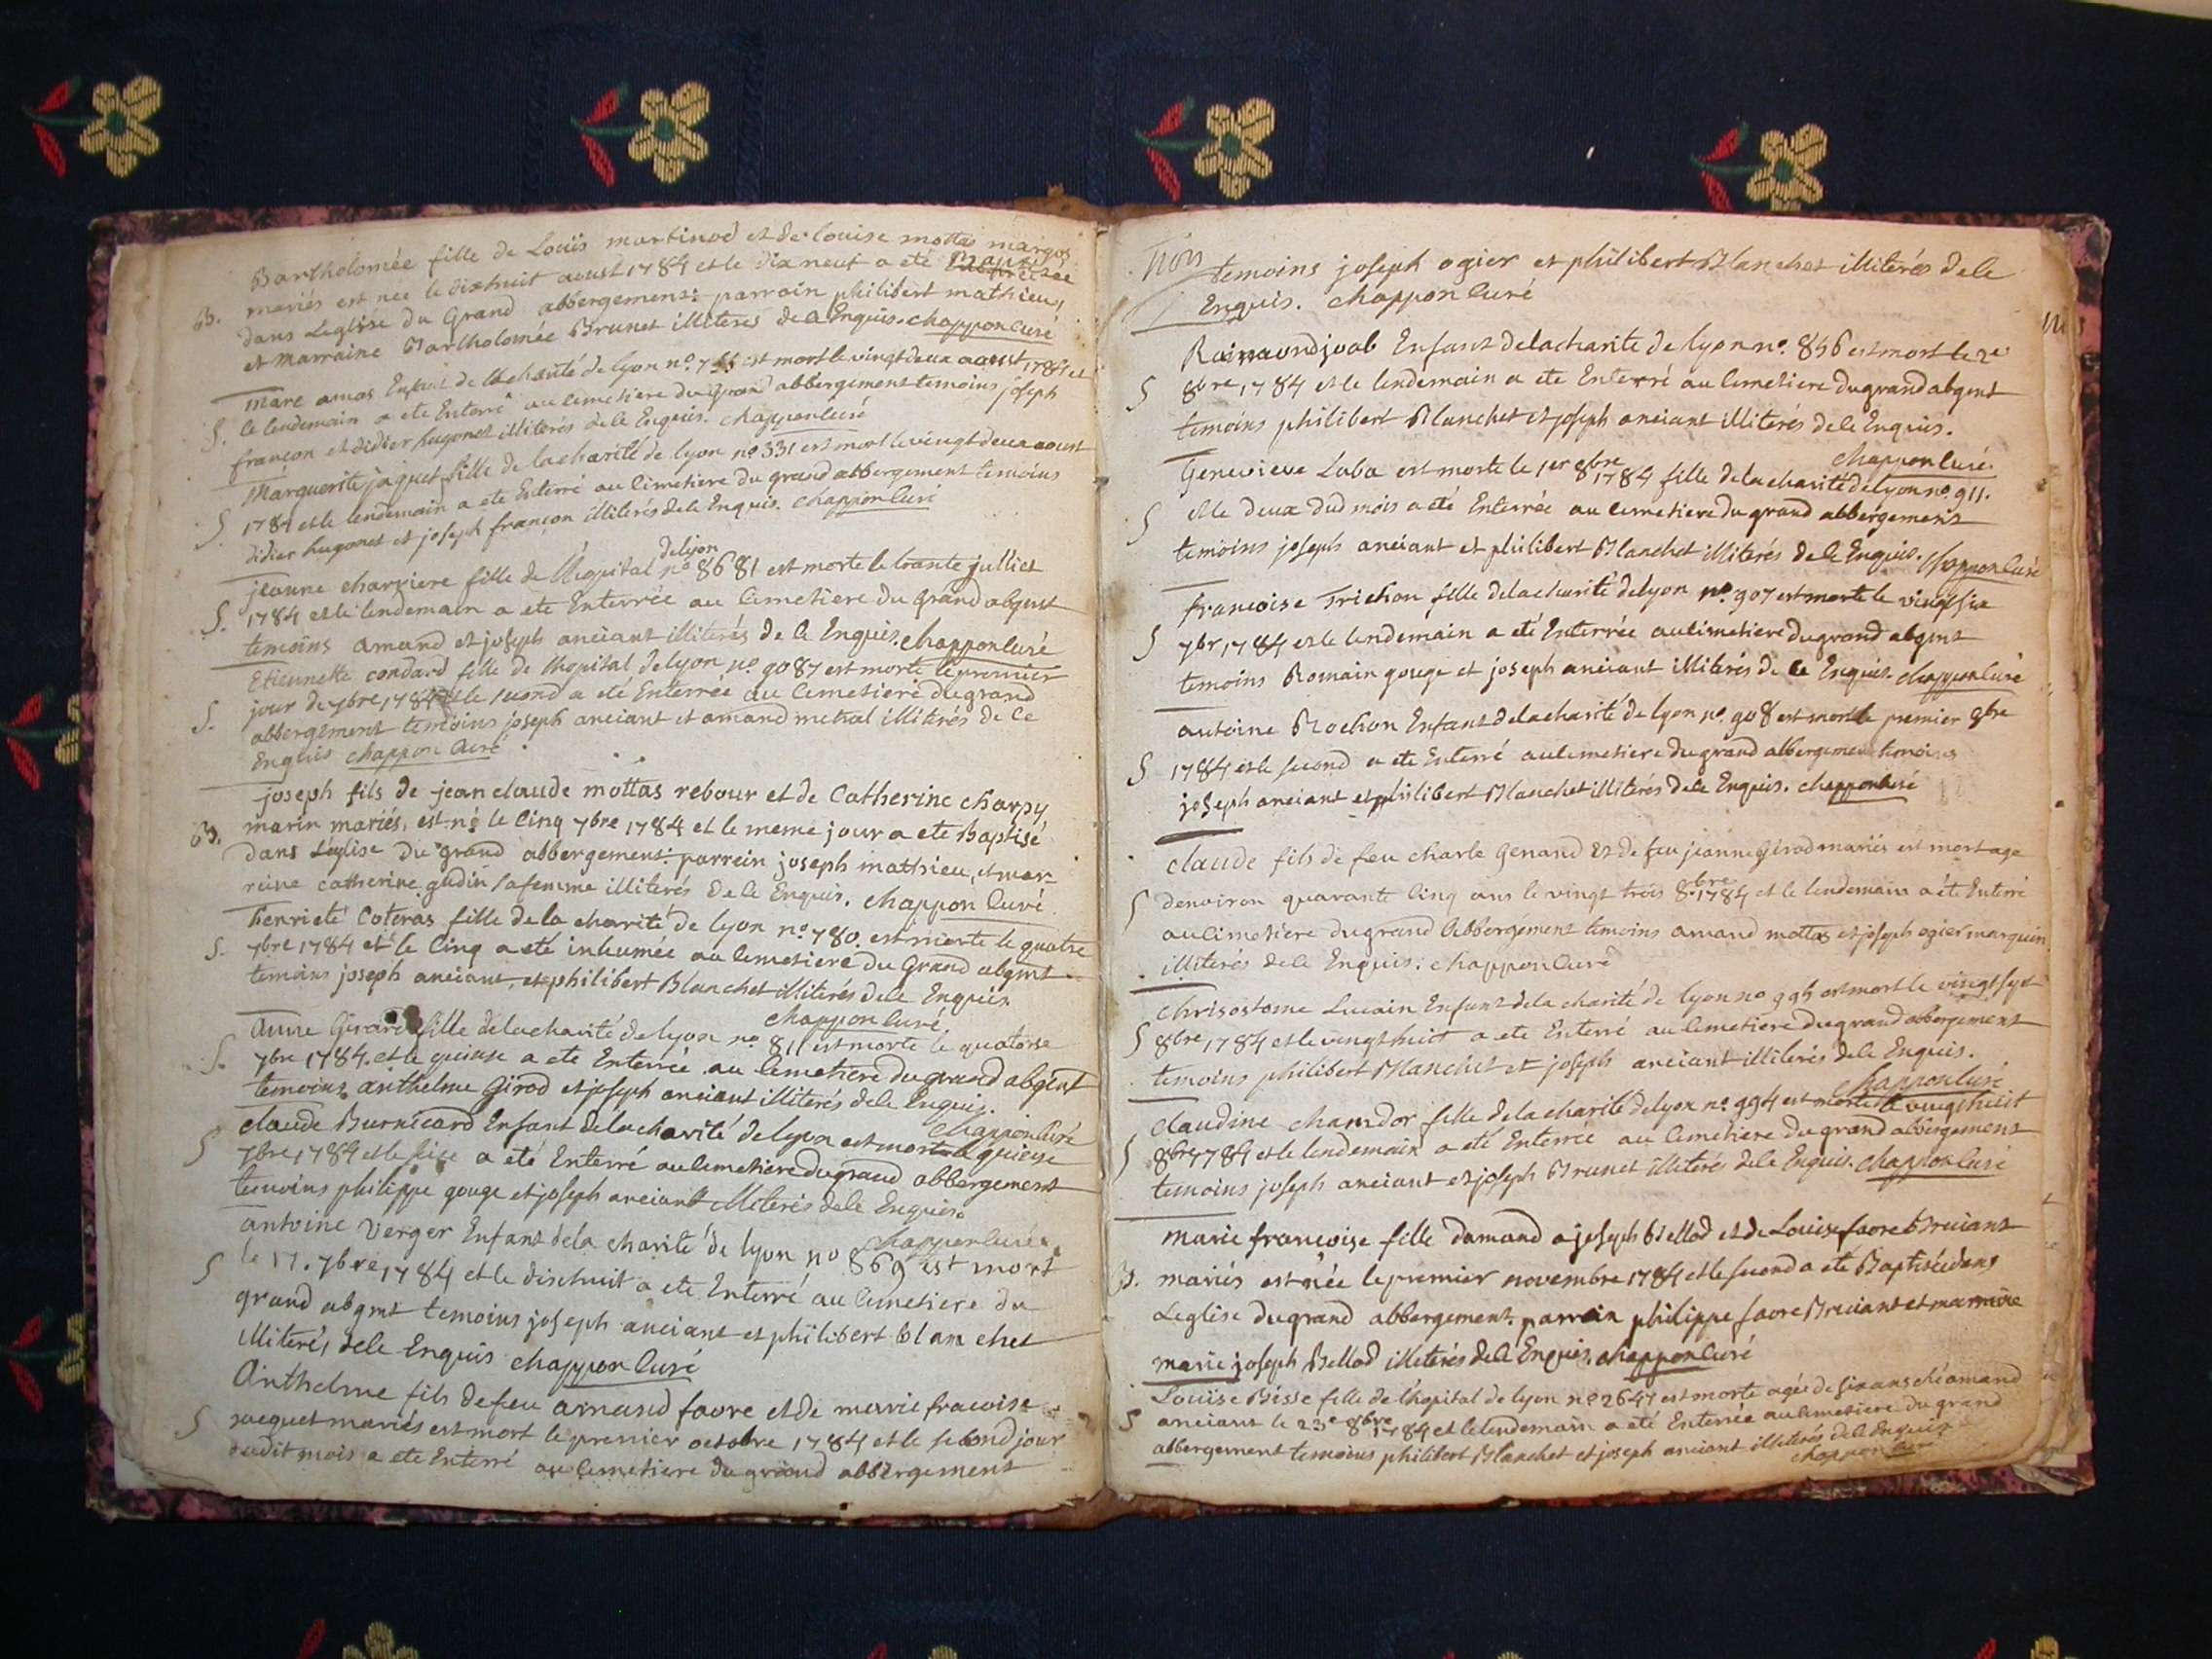 Bartholomée fille de Louis martinod et de louise mottas margos
B. mariés est née le dixhuit aoust 1784 et le dix neuf a été Baptisée
dans Leglise du Grand abbergement: parrain philibert mathieu,
et Marraine Bartholomée Brunet illiteres de ce Enquis. chappon Curé
marc amas Enfant de la charité de lyon no. est mort le vingt deux aoust 1784 et
S. le lendemain a ete Enterré au Cimetiere du grand abbergement temoins joseph
françon et didier hugonet illiterés de ce Enquis. chappon Curé
Marguerite jaquet fille de la charité de lyon no 331 est mort le vingt deux aoust
S 1784 et le lendemain a ete Enterré au Cimetiere du grand abbergement temoins
didier hugonet et joseph françon illiterés de ce Enquis. chappon Curé
de lyon
jeanne charriere fille de l'hopital no 8681 est morte le trante julliet
S. 1784 et le lendemain a ete Enterrée au Cimetiere du grand abgmt
temoins amand et joseph anciant illiterés de ce Enquis. chappon Curé
Etiennette condard fille de lhopital de lyon no. 9087 est morte le premier
S. jour de 7bre, 1784 et le second a eté Enterrée au Cimetiere du grand
abbergement temoins joseph anciant et amand metral illiterés de ce
Enquis chappon Curé
joseph fils de jean claude mottas rebour et de Catherine charpy
B. marin mariés, est né le Cinq 7bre 1784 et le meme jour a ete Baptisé
dans Leglise du grand abbergement: parrein joseph mathieu, et mar-
reine catherine gudin sa femme illiterés de ce Enquis. chappon Curé
henrieté Coteras fille de la charité de lyon no. 780. est morte le quatre
S. 7bre 1784 et le Cinq a eté inhumée au Cimetiere du Grand abgmt
temoins joseph anciant, et philibert Blanchet illiterés de ce Enquis
chappon Curé.
anne Girard fille de la charité de lyon no 811 est morte le quatorse
S. 7bre 1784. et le quinse a ete Enterrée au Cimetiere du grand abgent
temoins anthelme Girod et joseph anciant illiterés de ce Enquis.
chappon Curé
claude Burnicard Enfant de la charité de lyon est mort le quinse
S 7bre, 1784 et le sise a eté Enterré au Cimetiere du grand abbergement
temoins philippe gouge et joseph anciant illiterés de ce Enquis.
chappon Curé
antoine Verger Enfant de la charité de lyon no 869 est mort
S le 17. 7bre, 1784 et le dixhuit a ete Enterré au Cimetiere du
grand abgmt temoins joseph anciant et philibert blanchet
illiterés de ce Enquis chappon Curé
Anthelme fils de feu amand favre et de marie fracoise
S jacquet mariés est mort le premier octobre 1784 et le second jour
dudit mois a ete Enterré au Cimetiere du grand abbergement
temoins joseph ogier et philibert Blanchet illiterés de ce
Enquis. chappon Curé
Enfant de la charité de lyon no. 856 est mort le 2e
S 8bre, 1784 et le lendemain a ete Enterré au Cimetiere du grand abgmt
temoins philibert Blanchet et joseph anciant illiterés de ce Enquis.
chappon Curé
Genevieve Luba est morte le 1er 8bre 1784 fille de la charité de lyon no. 911.
S et le deux dud mois a eté Enterrée au Cimetiere du grand abbergement
temoins joseph anciant et philibert Blanchet illiterés de ce Enquis. chappon Curé
francoise Trichon fille de la charité de lyon no. 907 est morte le vingt six
S 7br, 1784 et le lendemain a eté Enterrée au Cimetiere du grand abgmt
temoins Romain gouge et joseph anciant illiterés de ce Enquis. chappon Curé
antoine Rochon Enfant de la charité de lyon no. 908 est mort le premier 8bre
S 1784 et le second a ete Enterré au Cimetiere du grand abbergement temoins
joseph anciant et philibert Blanchet illiterés de ce Enquis. chappon Curé
claude fils de feu charle Genand et de feu jeanne Girod mariés est mort age
S denviron quarante Cinq ans le vingt trois 8.bre 1784 et le lendemain a été Enterré
au Cimetiere du grand Abbergement temoins amand mottas et joseph ogier marquin
illiterés de ce Enquis: chappon Curé
Chrisostome Lucain Enfant de la charité de lyon no 995 est mort le vingt sept
S 8bre, 1784 et le vingt huit a ete Enterré au Cimetiere du grand abbergement
temoins philibert Blanchet et joseph anciant illiterés de ce Enquis.
chappon Curé
Claudine chamdor fille de la charité de lyon no. 994 est morte le vingt huit
S 8bre 1784 et le lendemain a eté Enterrée au Cimetiere du grand abbergement
temoins joseph anciant et joseph Brunet illiterés de ce Enquis. chappon Curé
marie francoise fille damand joseph Bellod et de Louise favre Bruiant
B. mariés est née le premier novembre 1784 et le second a eté Baptisée dans
Leglise du grand abbergement. parrain philippe favre Bruiant et marraine
marie joseph Bellod illiterés de ce Enquis. chappon Curé
Louise Bésse fille de l'hopital de lyon no 2647 est morte agée de six ans ché amand
S anciant le 23e 8bre 1784 et le lendemain a eté Enterrée au Cimetiere du grand
abbergement temoins philibert Blanchet et joseph anciant illiterés de ce Enquis
chappon Curé